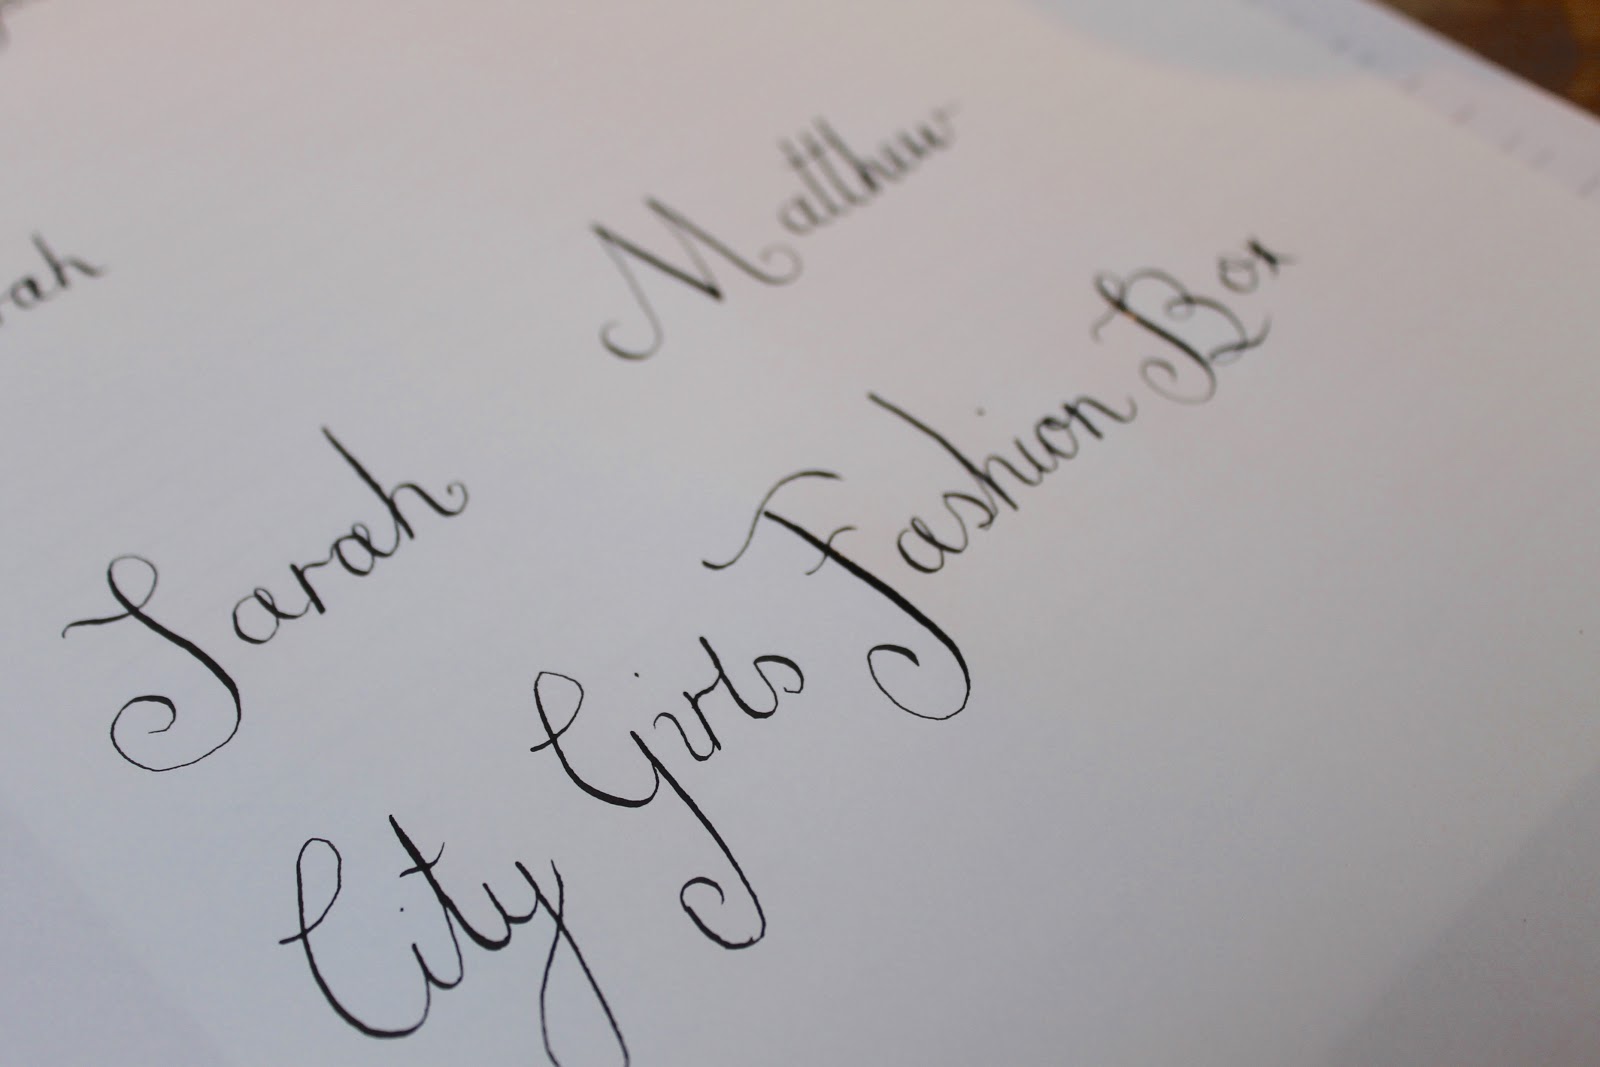 Matthew
Sarah
City Girls Fashion Box